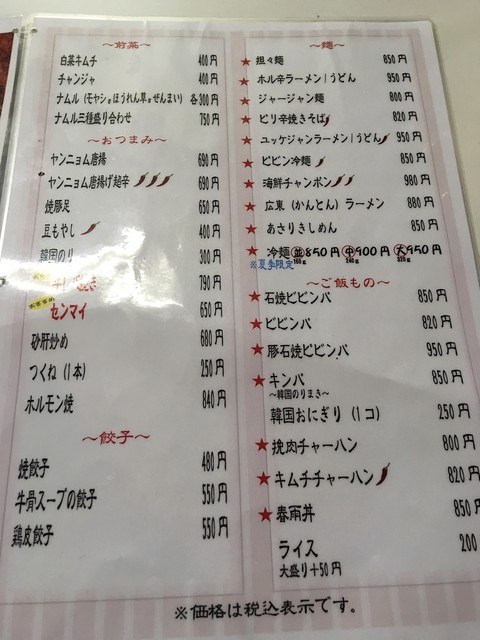 ～前菜～
白菜キムチ 400円
チャンジャ 400円
ナムル (モヤシorほうれん草orぜんまい) 各300円
ナムル三種盛り合わせ 750円
～おつまみ～
ヤンニョム唐揚 690円
ヤンニョム唐揚げ超辛 690円
焼豚足 650円
豆もやし 400円
韓国のり 300円
790円
センマイ 650円
砂肝炒め 680円
つくね (1本) 250円
ホルモン焼 840円
～餃子～
焼餃子 480円
牛骨スープの餃子 550円
鶏皮餃子 550円
～麺～
★ 担々麺 850円
★ ホル辛ラーメン|うどん 950円
★ ジャージャン麺 800円
★ ピリ辛焼きそば 820円
★ ユッケジャンラーメン|うどん 950円
★ ビビン冷麺 850円
★ 海鮮チャンポン 980円
★ 広東 (かんとん) ラーメン 880円
★ あさりきしめん 850円
★ 冷麺 並850円 中900円 大950円
※夏季限定 160g 240g 320g
～ご飯もの～
★ 石焼ビビンバ 850円
★ ビビンバ 820円
★ 豚石焼ビビンバ 950円
★ キンパ 850円
～韓国のりまき～
韓国おにぎり (1コ) 250円
★ 挽肉チャーハン 800円
★ キムチチャーハン 820円
★ 春雨丼 850円
ライス 200
大盛り+50円
※価格は税込表示です。